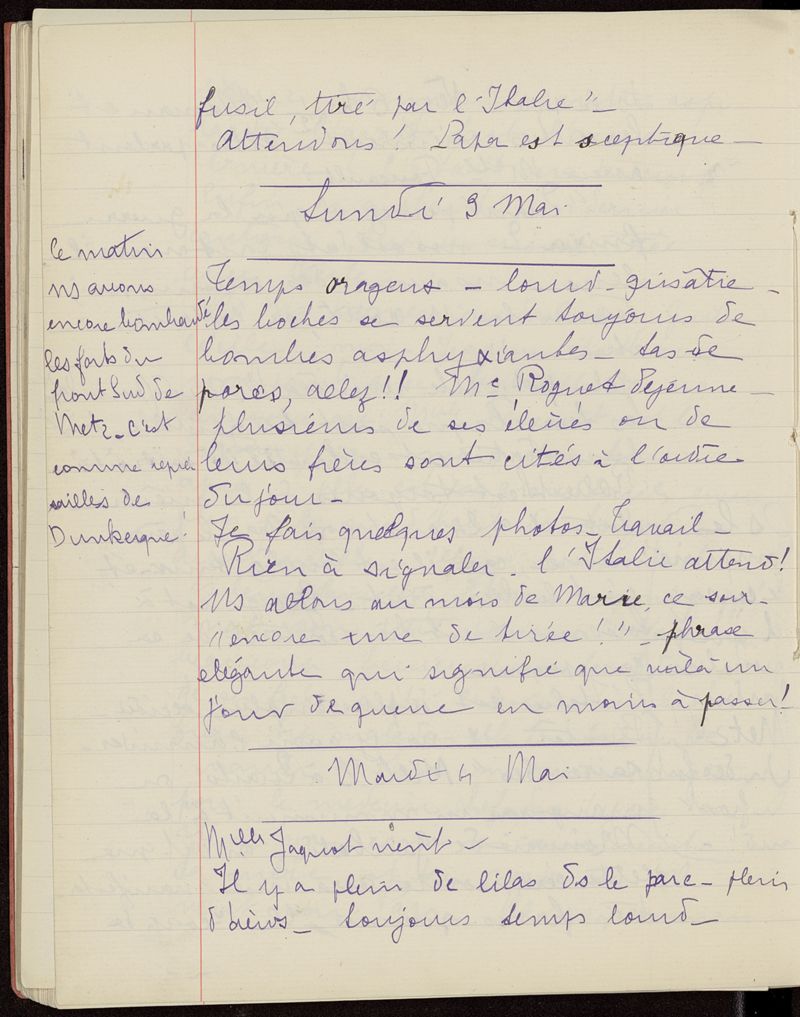 fusil, tiré par l'Italie" _
Attendons ! Papa est sceptique _
Lundi 3 Mai
Ce matin
ns avons
encore bombardé
les forts du
front Sud de
Metz _ c'est
comme repré
sailles de
Dunkerque !
Temps orageux _ lourd _ grisâtre _
les boches se servent toujours de
bombes asphyxiantes _ tas de
porcs, allez !! Me Roguet déjeune _
plusieurs de ses élèves ou de
leurs frères sont cités à l'ordre
du jour _
Je fais quelques photos _ Travail _
Rien à signaler _ l'Italie attend !
Ns allons au mois de Marie, ce soir _
"encore une de tirée !" _ phrase
élégante qui signifie que voilà un
jour de guerre en moins à passer !
Mardi 4 Mai
Melle Jaquot vient _
Il y a plein de lilas ds le parc _ plein
_ toujours temps lourd _